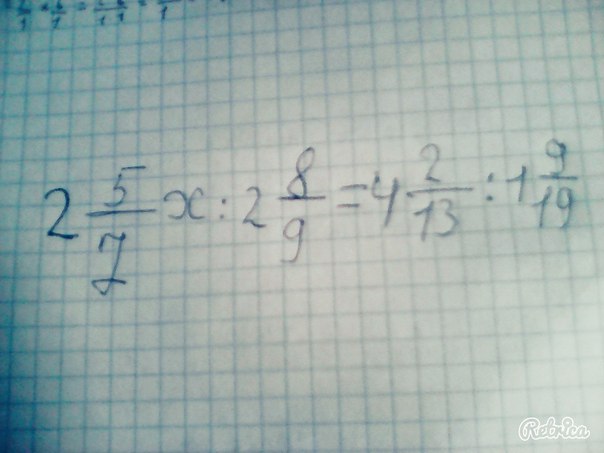 2 5/7 x : 2 8/9 = 4 2/13 : 1 9/19
Retrica